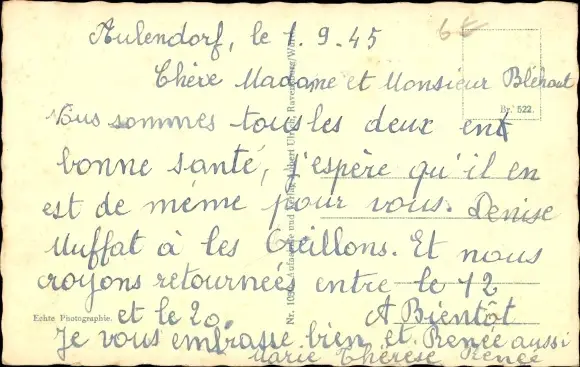 Aulendorf, le 1. 9. 45
6€
Chère Madame et Monsieur Blénaut
Br. 522.
Nous sommes tous les deux en
bonne santé, j'espère qu'il en
est de même pour vous. Denise
Muffat à les Oreillons. Et nous
croyons retournées entre le 12
et le 20. A Bientôt
Je vous embrasse bien et Renée aussi
Marie Thérèse Renée
Echte Photographie.